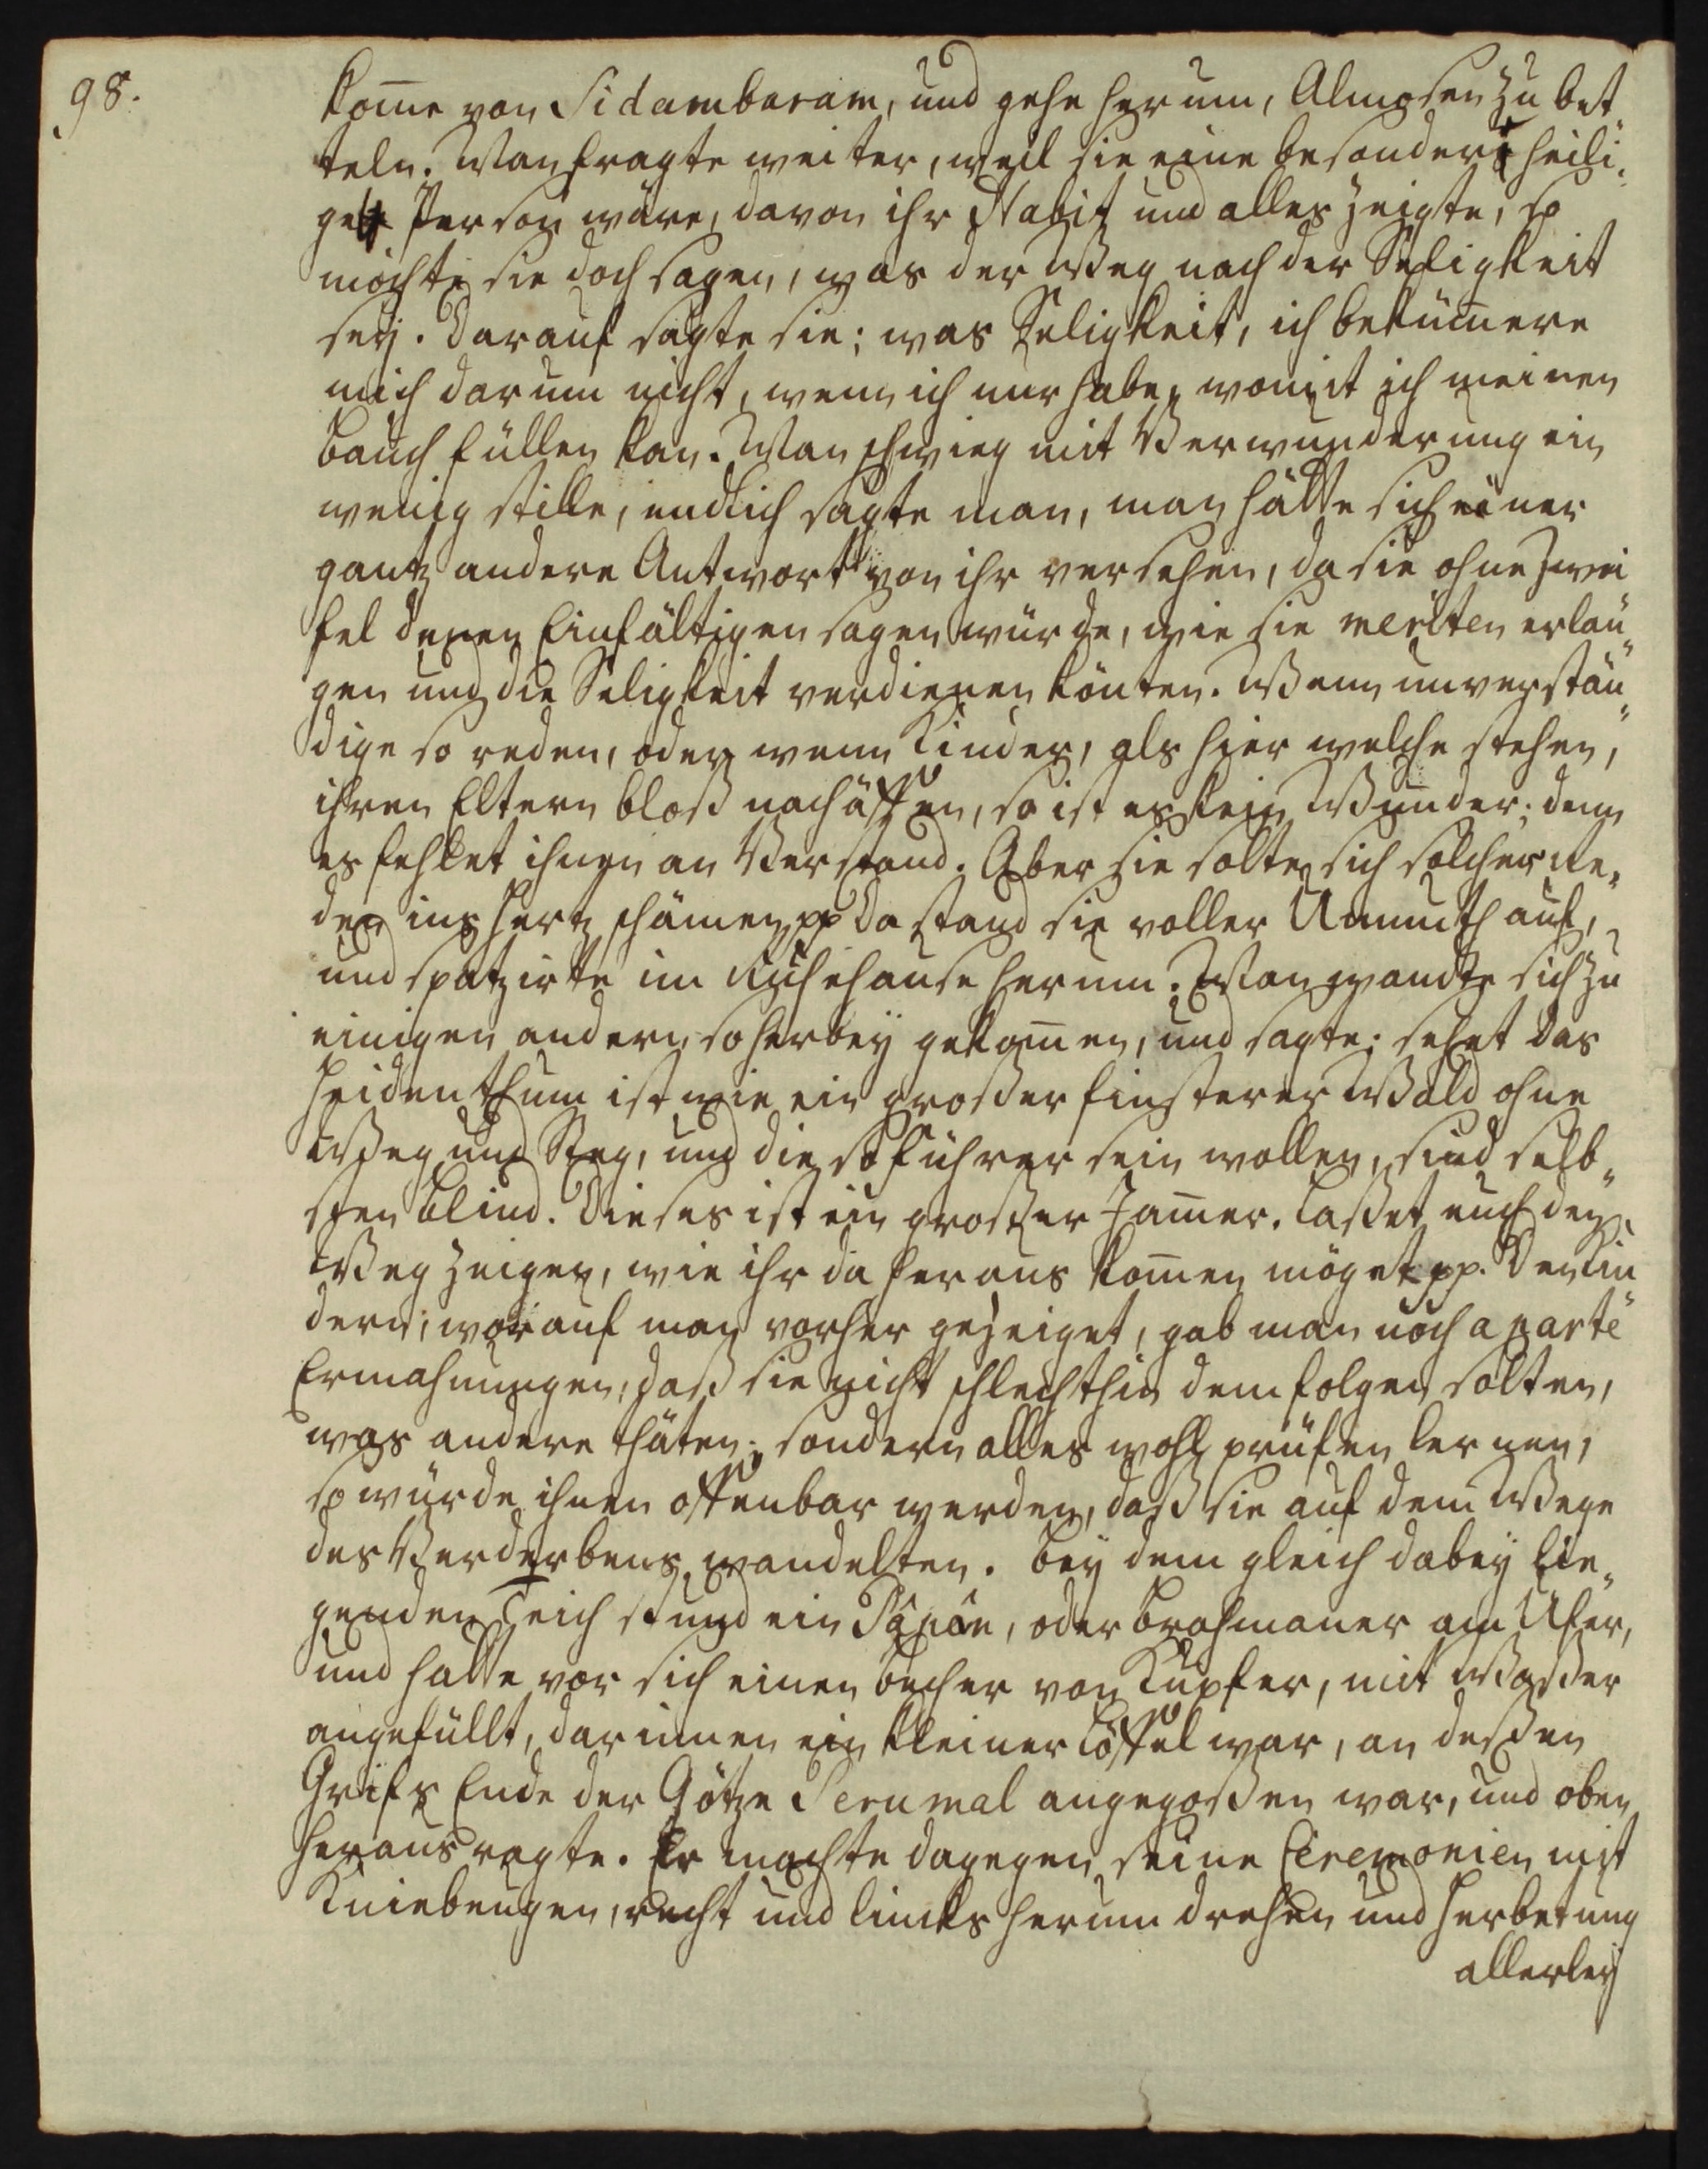 98.
kom̄e von Sidambaram, und gehe herum, Almosen zu bet„
teln. Man fragte weiter, weil sie eine besonders heili„
ge Person wäre, davon ihr Habit und alles zeigte, so
möchte sie doch sagen, was der Weg nach der Seligkeit
seÿ. Darauf sagte sie; was Seligkeit, ich bekum̄ere
mich darum nicht, wenn ich nur habe, womit ich meinen
Bauch füllen kan. Man schwieg mit Verwunderung ein
wenig stille, endlich sagte man, man hätte sich einer
gantz andere Antwort von ihr versehen, da sie ohne Zwei
fel denen Einfältigen sagen würde, wie sie meriten erlan„
gen und die Seligkeit verdienen könten. Wenn unverstän„
dige so reden, oder wenn Kinder, als hier welche stehen,
ihren Eltern bloß nachäffen, so ist es kein Wunder; denn
es fehlet ihnen an Verstand. Aber sie solte sich solcher Re„
den ins Hertz schämen pp Da stand sie voller Unmuth auf,
und spatzirte im Ruhehause herum. Man wandte sich zu
einigen andern, so herbeÿ gekom̄en, und sagte: sehet das
Heidenthum ist wie ein großer finsterer Wald ohne
Weg und Steg, und die so führer sein wollen, sind selb„
sten blind. Dieses ist ein großer Jam̄er. Laßet euch den
Weg zeigen, wie ihr da heraus kom̄en möget pp. Den Kin
dern, worauf man vorher gezeiget, gab man noch aparte
Ermahnungen, daß sie nicht schlechthin dem folgen solten,
was andere thäten; sondern alles wohl prüfen lernen,
so würde ihnen offenbar werden, daß sie auf dem Wege
des Verderbens wandelten. Beÿ dem gleich dabeÿ lie„
genden Teich stund ein Pâpân, oder Brahmaner am Ufer,
und hatte vor sich einen Becher von Kupfer, mit Waßer
angefüllt, darinnen ein kleiner Löffel war, an deßen
Grifs Ende der Götze Perumal angegoßen war, und oben
heraus ragte. Er machte dagegen seine Ceremonien mit
Kniebeugen, recht und lincks herum drehen und Herbetung
allerleÿ